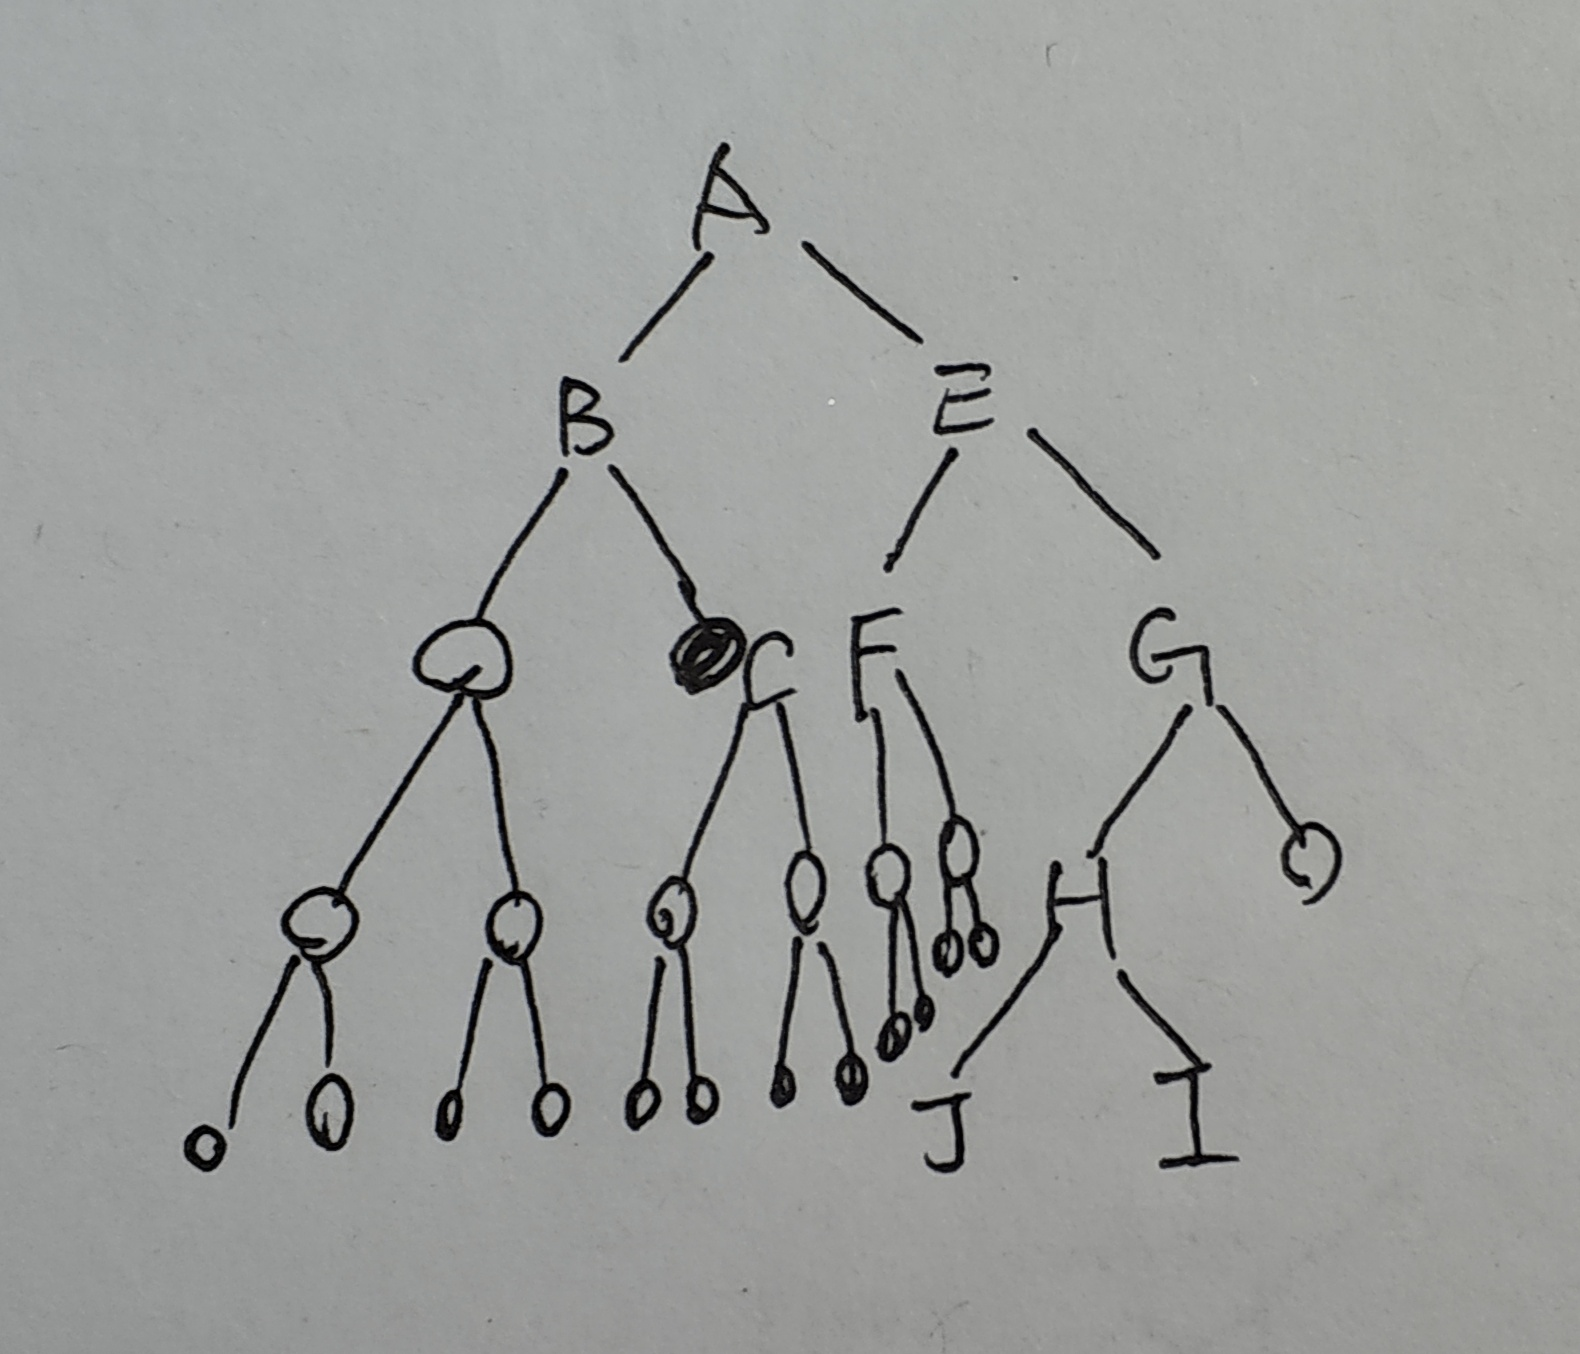 A
B E
C F G
H
J I